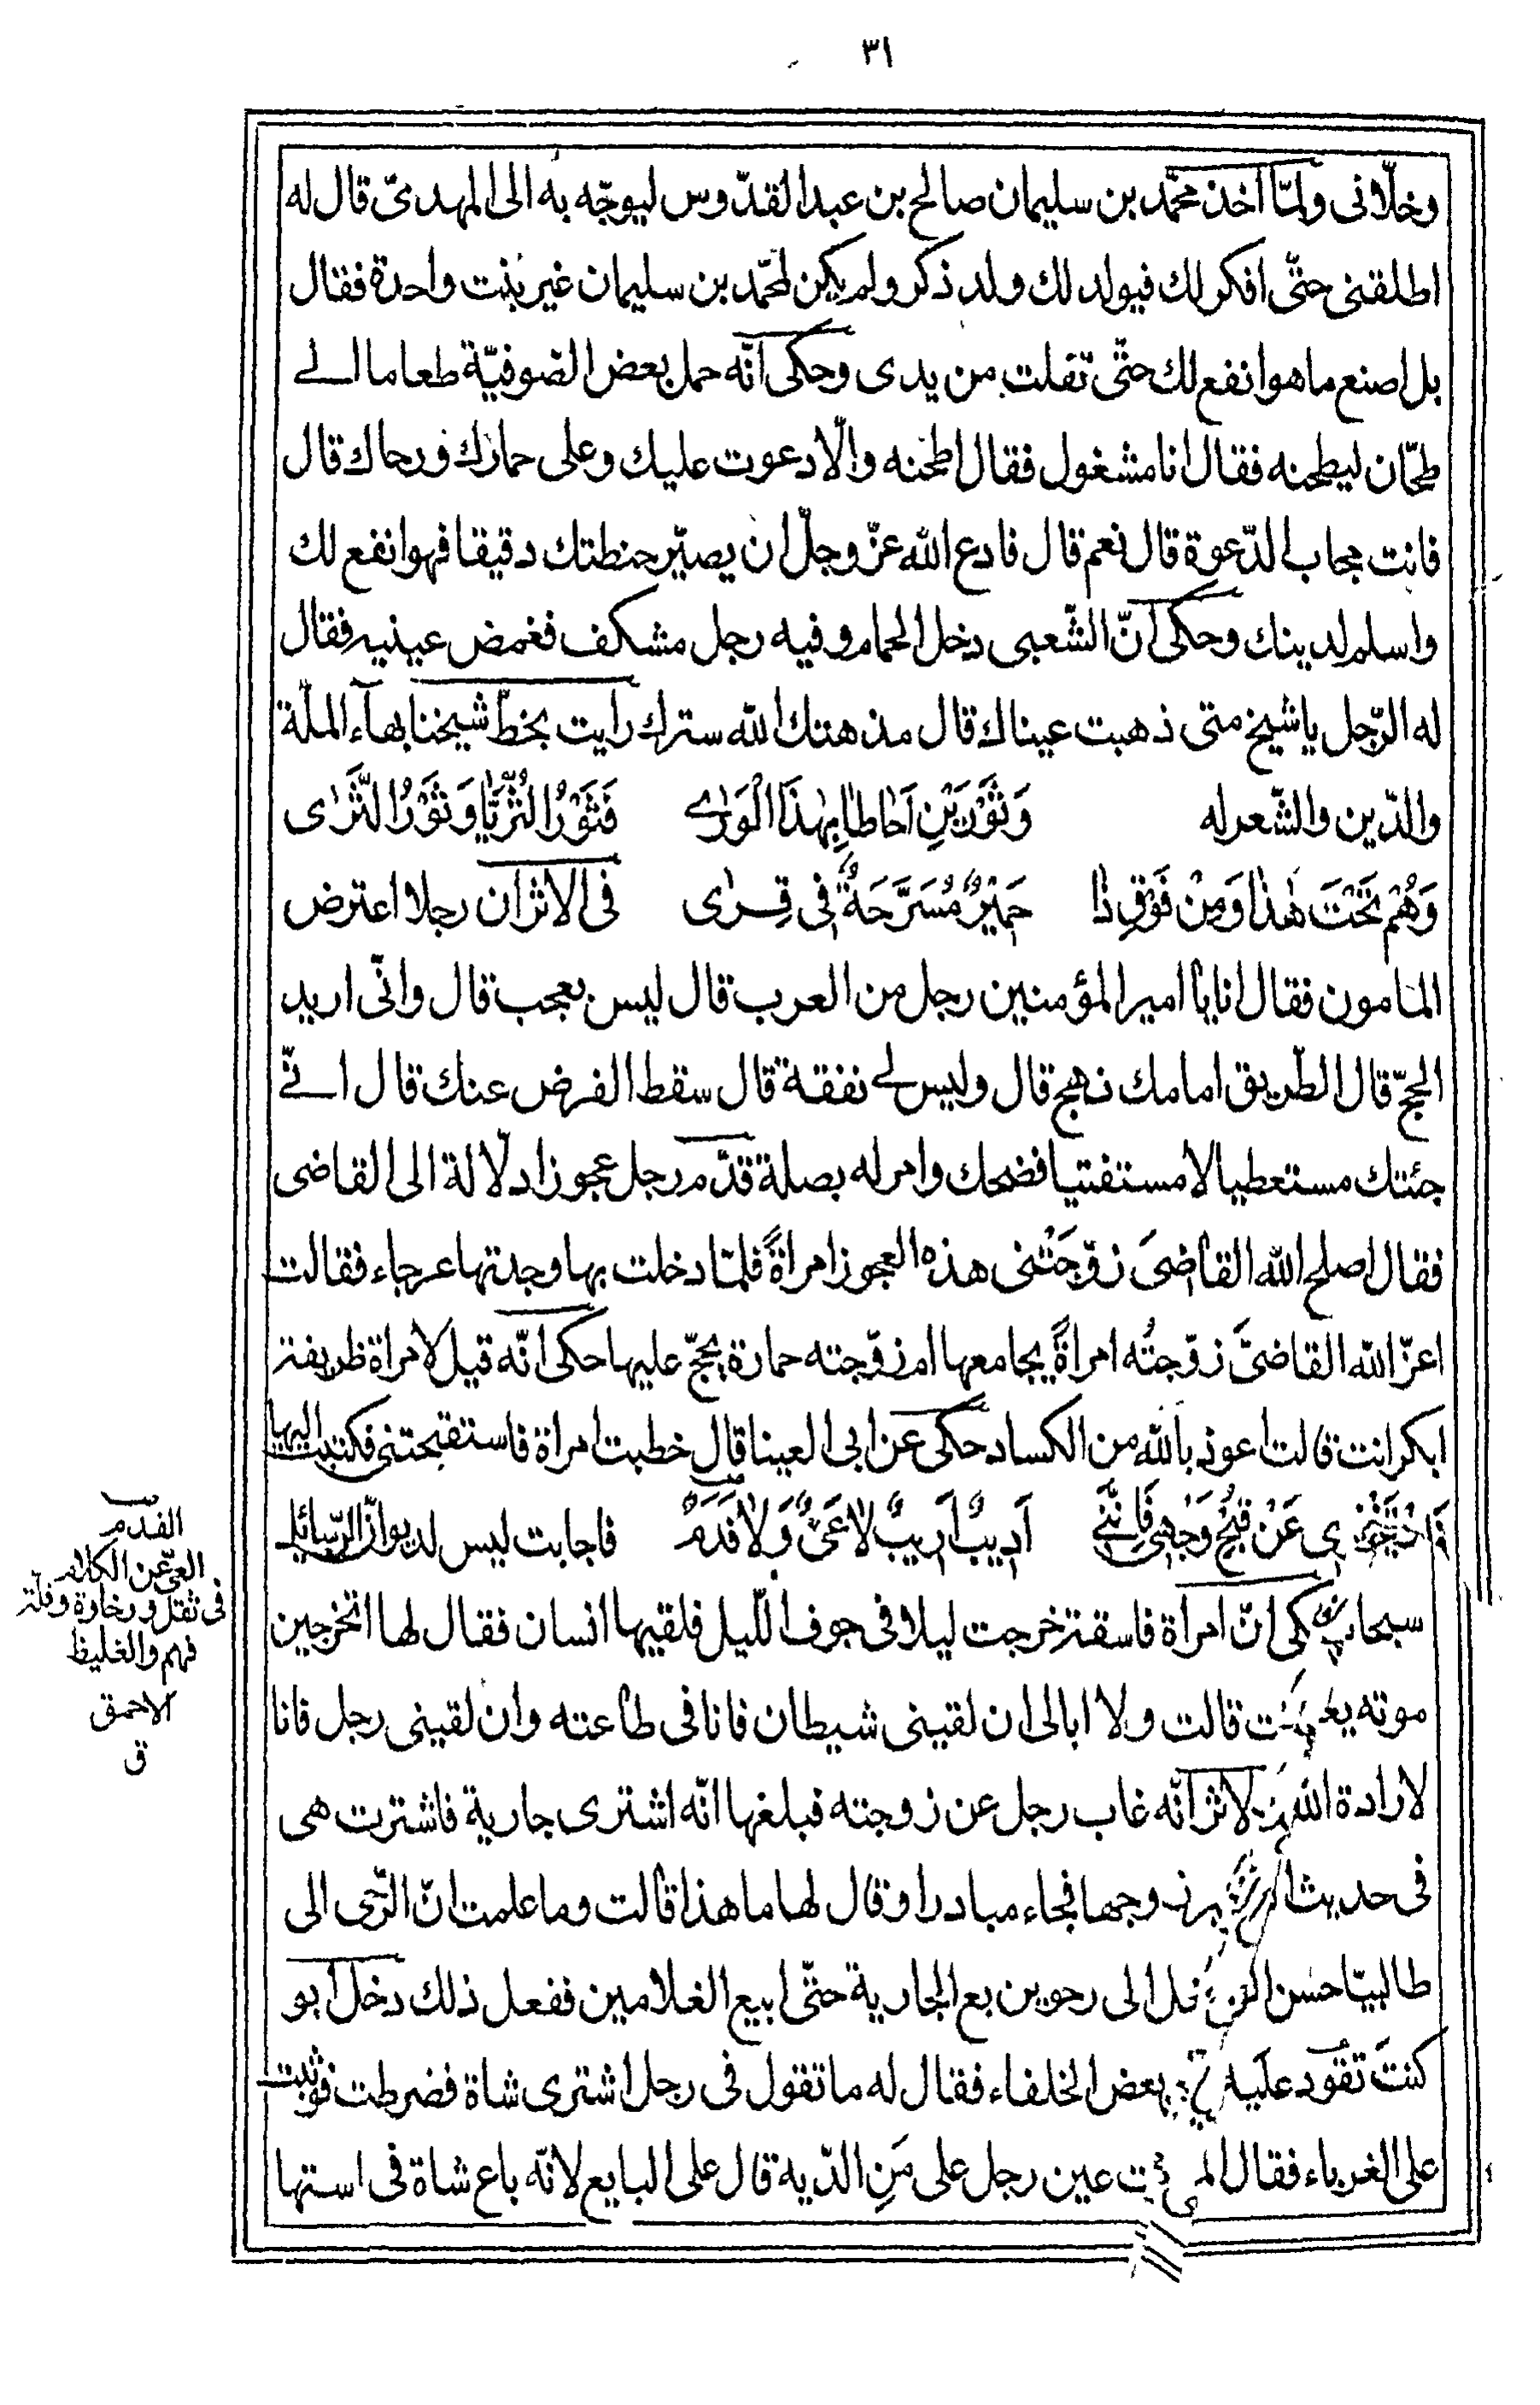 ٣١
وخلّانى ولمّا اخذ محمّد بن سليمان صالح بن عبد القدّوس ليوجّه به الى المهدىّ قال له
اطلقنى حتّى افكر لك فيولد لك ولد ذكر ولم يكن لمحمّد بن سليمان غير بنت واحدة فقال
بل اصنع ما هو انفع لك حتّى تفلت من يدى وحكى انّه حمل بعض الصّوفيّة طعاما الى
طحّان ليطحنه فقال انا مشغول فقال اطحنه والّا دعوت عليك وعلى حمارك ورحاك قال
فانت مجاب الدّعوة قال نعم قال فادع الله عزّ وجلّ ان يصيّر حنطتك دقيقا فهو انفع لك
واسلم لدينك وحكى انّ الشّعبى دخل الحمام وفيه رجل مشكف فغمض عينيه فقال
له الرّجل يا شيخ متى ذهبت عيناك قال مذ هتك الله سترك رايت بخطّ شيخنا بهآء الملّة
والدّين والشّعر له وَثَوْرَيْنِ اَحَاطَا بِهٰذَا الْوَرٰى فَثَوْرُ الثُّرَيَّا وَثَوْرُ الثَّرٰى
وَهُمْ تَحْتَ هٰذَا وَمِنْ فَوْقِ ذَا حَمِيْرٌ مُسَرَّحَةٌ فِى قِرٰى فى الاثر ان رجلا اعترض
المامون فقال انا يا امير المؤمنين رجل من العرب قال ليس بعجب قال وانّى اريد
الحجّ قال الطّريق امامك نهج قال وليس لى نفقة قال سقط الفرض عنك قال انّى
جئتك مستعطيا لا مستفتيا فضحك وامر له بصلة قدّم رجل عجوزا دلّالة الى القاضى
فقال اصلح الله القاضىَ زوّجَتْنى هذه العجوز امراةً فلمّا دخلت بها وجدتها عرجاء فقالت
اعزّ الله القاضىَ زوّجتُه امراةً يجامعها ام زوّجته حمارة يحجّ عليها حكى انّه قيل لامراة ظريفة
ابكر انت قالت اعوذ بالله من الكساد حكى عن ابى العينا قال خطبت امراة فاستقبحتنى فكتبت اليها
عَنْ قُبْحِ وَجْهِى فَاِنَّنِى اَدِيبٌ اَرِيبٌ لَا عَىٌّ وَلَا فَدَمٌ فاجابت ليس لديوان الرّسائل
انّ امراة فاسقة خرجت ليلا فى جوف اللّيل فلقيها انسان فقال لها اتخرجين
قالت ولا ابالى ان لقينى شيطان فانا فى طاعته وان لقينى رجل فانا
لارادة الله انّه غاب رجل عن زوجته فبلغها انّه اشترى جارية فاشترت هى
فجاء مبادرا وقال لها ما هذا قالت وما علمت انّ الرّحى الى
الى رحوين بع الجارية حتّى ابيع الغلامين ففعل ذلك دخل ابو
كنتَ تقود عليه بعض الخلفاء فقال له ما تقول فى رجل اشترى شاة فضرطت فوثبت
على الغرباء فقال عين رجل على مَنِ الدّية قال على البايع لانّه باع شاة فى استها
الفدم
العىّ عن الكلام
فى ثقل ورخارة وقلّة
فهم والغليظ
الاحمق
ق